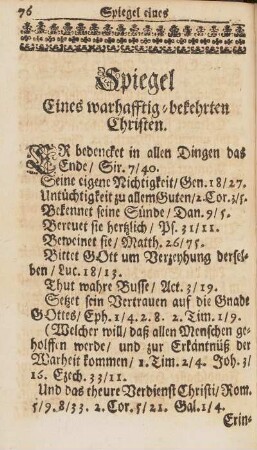 76 Spiegel eines
Spiegel
Eines warhafftig-bekehrten
Christen.
ER bedencket in allen Dingen das
Ende/ Sir. 7/40.
Seine eigene Nichtigkeit/ Gen. 18/27.
Untüchtigkeit zu allem Guten/ 2. Cor. 3/5.
Bekennet seine Sünde/ Dan. 9/5.
Bereuet sie hertzlich/ Ps. 31/11.
Beweinet sie/ Matth. 26/75.
Bittet GOtt um Verzeyhung dersel-
ben/ Luc. 18/13.
Thut wahre Busse/ Act. 3/19.
Setzet sein Vertrauen auf die Gnade
GOttes/ Eph. 1/4. 2. 8. 2. Tim. 1/9.
(Welcher will/ daß allen Menschen ge-
holffen werde/ und zur Erkäntnüß der
Warheit kommen/ 1. Tim. 2/4. Joh. 3/
16. Ezech. 33/11.
Und das theure Verdienst Christi/ Rom.
5/9. 8/33. 2. Cor. 5/21. Gal. 1/4.
Erin-